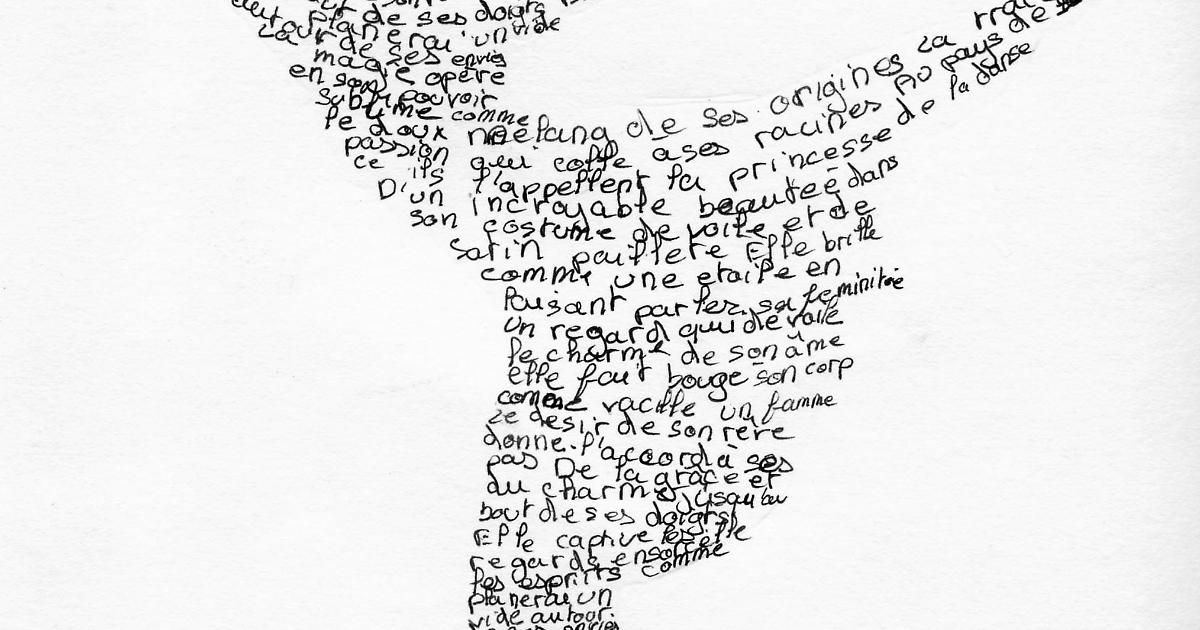 de ses doigts
planerai un vide
autour de ses envies
magie opère
en son pouvoir
sublime comme
le doux melang de ses origines La
passion qui colle a ses racines Au pays de
ce ils l'appellent la princesse de la danse
D'un incroyable beauteé dans
son costume de voile et de
Satin paillete Elle brille
comme une etoile en
faisant parler sa feminitée
Un regard qui dévoile
le charme de son âme
elle fait bouge son corp
comme vacille un famme
Le desir de son rêve
donne l'accord à ses
pas De la grâce et
du charme jusqu'au
bout de ses doigts
Elle captive les
regards ensorcelle
les esprits comme
planerai un
vide autour